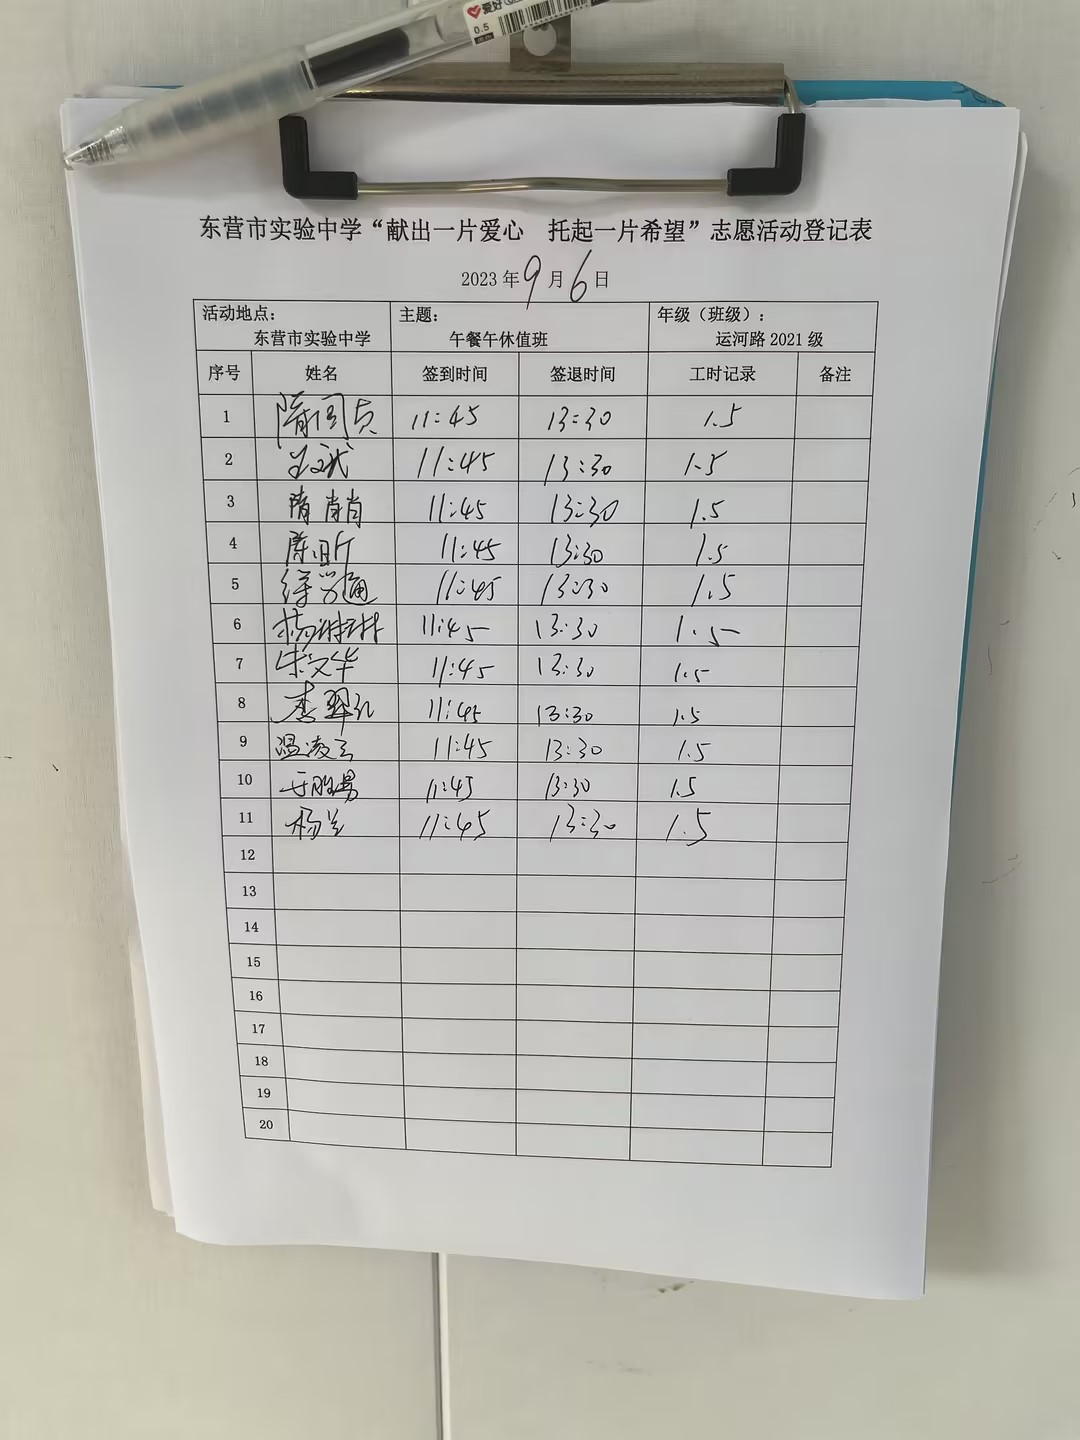 爱好
0.5
东营市实验中学“献出一片爱心 托起一片希望”志愿活动登记表
2023 年 9 月 6 日
活动地点： 主题： 年级（班级）：
东营市实验中学 午餐午休值班 运河路 2021 级
序号 姓名 签到时间 签退时间 工时记录 备注
1 11:45 13:30 1.5
2 11:45 13:30 1.5
3 隋肖肖 11:45 13:30 1.5
4 陈昕 11:45 13:30 1.5
5 11:45 13:30 1.5
6 杨琳琳 11:45 13:30 1.5
7 朱文华 11:45 13:30 1.5
8 李翠 11:45 13:30 1.5
9 温凌云 11:45 13:30 1.5
10 于胜男 11:45 13:30 1.5
11 杨兰 11:45 13:30 1.5
12
13
14
15
16
17
18
19
20